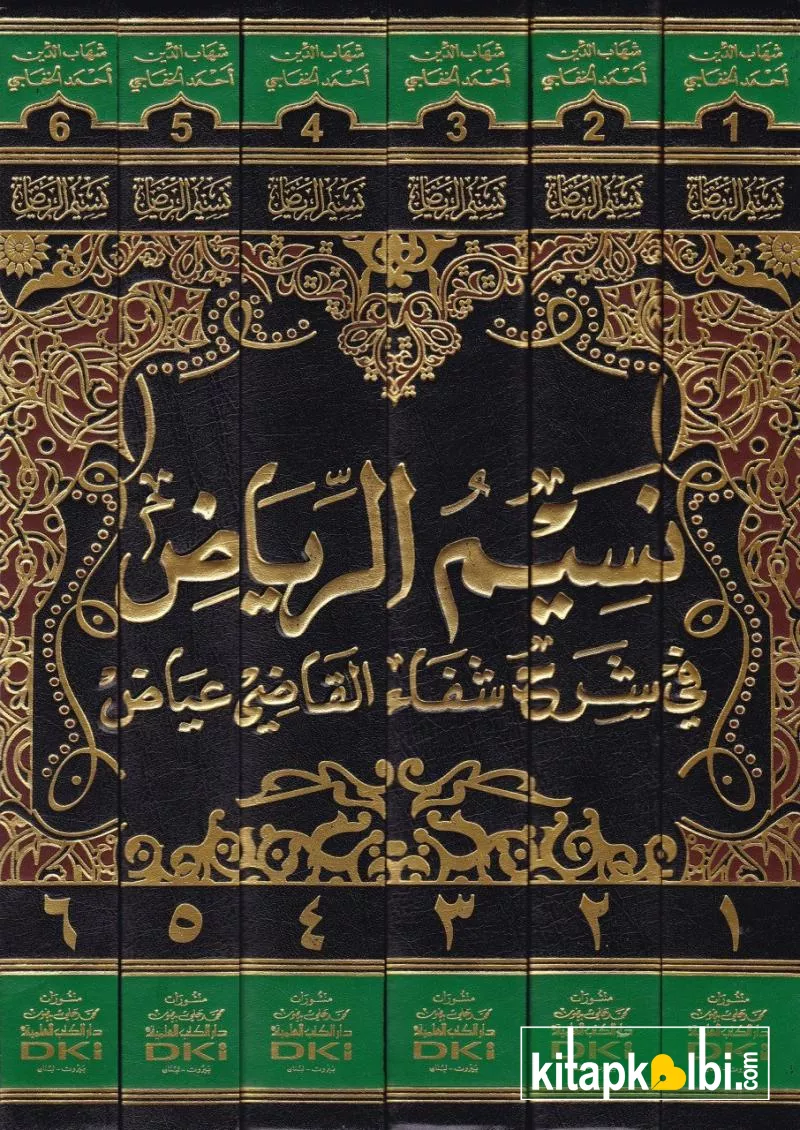 شهاب الدين شهاب الدين شهاب الدين شهاب الدين شهاب الدين شهاب الدين
أحمد الخفاجي أحمد الخفاجي أحمد الخفاجي أحمد الخفاجي أحمد الخفاجي أحمد الخفاجي
1 2 3 4 5 6
نسيم الرياض نسيم الرياض نسيم الرياض نسيم الرياض نسيم الرياض نسيم الرياض
نَسِيْمُ الرِّيَاضِ
في شرح شفاء القاضي عياض
١ ٢ ٣ ٤ ٥ ٦
منشورات منشورات منشورات منشورات منشورات منشورات
محمد علي بيضون محمد علي بيضون محمد علي بيضون محمد علي بيضون محمد علي بيضون
دار الكتب العلمية دار الكتب العلمية دار الكتب العلمية دار الكتب العلمية
DKi DKi DKi DKi DKi DKi
بيروت - لبنان بيروت - لبنان بيروت - لبنان بيروت - لبنان
kitapkalbi.com